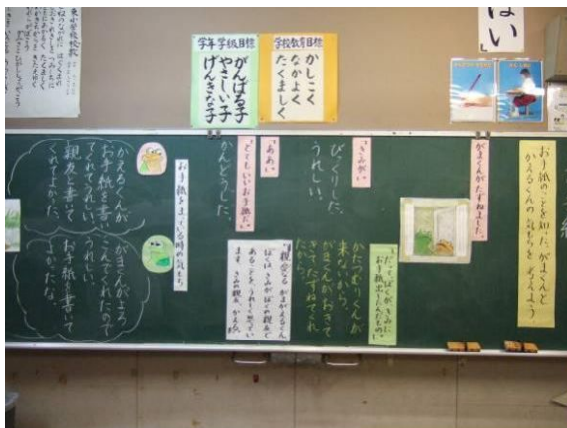 はい
学校教育目標
かしこく
なかよく
たくましく
学年学級目標
がんばる子
やさしい子
げんきな子
お手紙のことを知った、がまくんと
かえるくんの気もちを考えよう。
がまくんがたずねました。
「だって、ぼくが、きみに
お手紙出したんだもの。」
「きみが。」
びっくりした。
うれしい。
かたつむりくんが
来ないから、
がまくんがおきて
きてたずねてくれ
たから。
「ああ。」
「とてもいいお手紙だ。」
かんどうした。
「親愛なる がまがえるくん
ぼくは、きみがぼくの親友で
あることを、うれしく思ってい
ます。きみの親友、かえる」
お手紙をまっている時の気もち
かえるくんが
お手紙を書い
てくれてうれしい。
親友と書いて
くれてよかった。
がまくんがよろ
こんでくれたので
うれしい。
お手紙を書いて
よかったな。